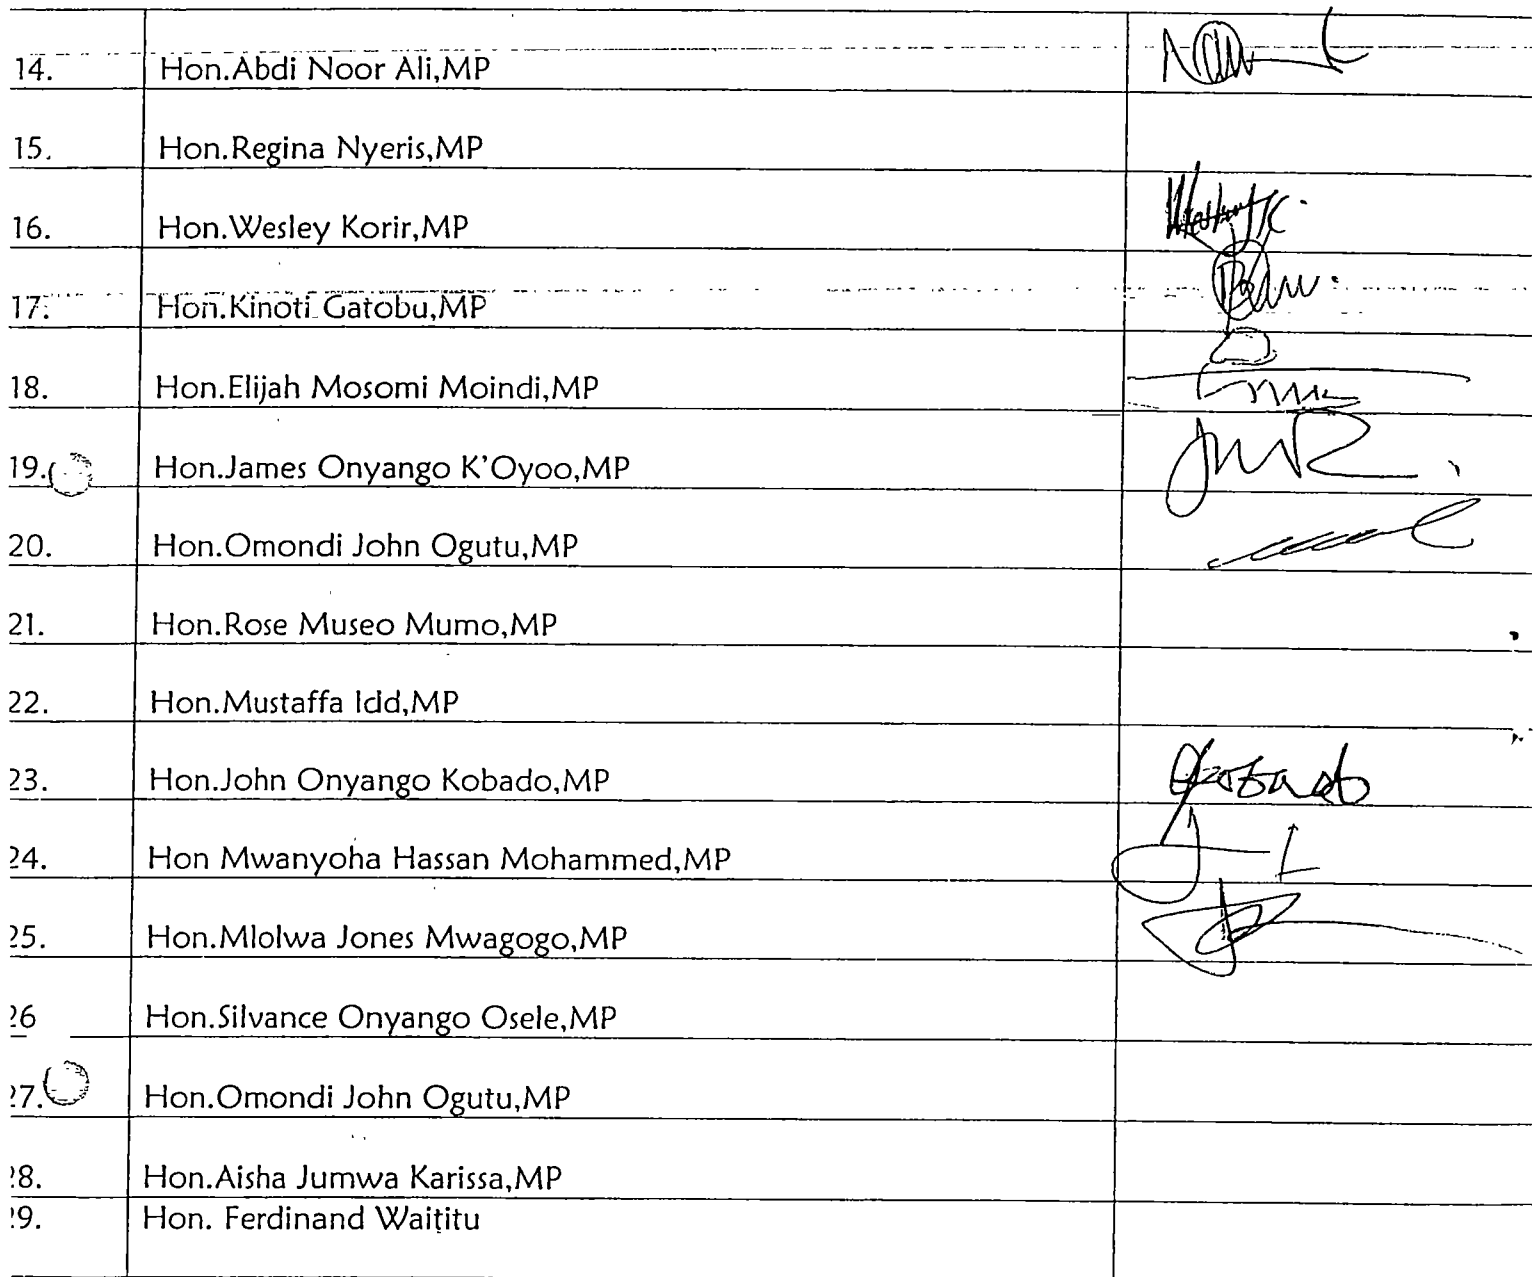 14. Hon.Abdi Noor Ali,MP
15. Hon.Regina Nyeris,MP
16. Hon.Wesley Korir,MP
17. Hon.Kinoti Gatobu,MP
18. Hon.Elijah Mosomi Moindi,MP
19. Hon.James Onyango K'Oyoo,MP
20. Hon.Omondi John Ogutu,MP
21. Hon.Rose Museo Mumo,MP
22. Hon.Mustaffa Idd,MP
23. Hon.John Onyango Kobado,MP
24. Hon Mwanyoha Hassan Mohammed,MP
25. Hon.Mlolwa Jones Mwagogo,MP
26 Hon.Silvance Onyango Osele,MP
27. Hon.Omondi John Ogutu,MP
28. Hon.Aisha Jumwa Karissa,MP
29. Hon. Ferdinand Waititu